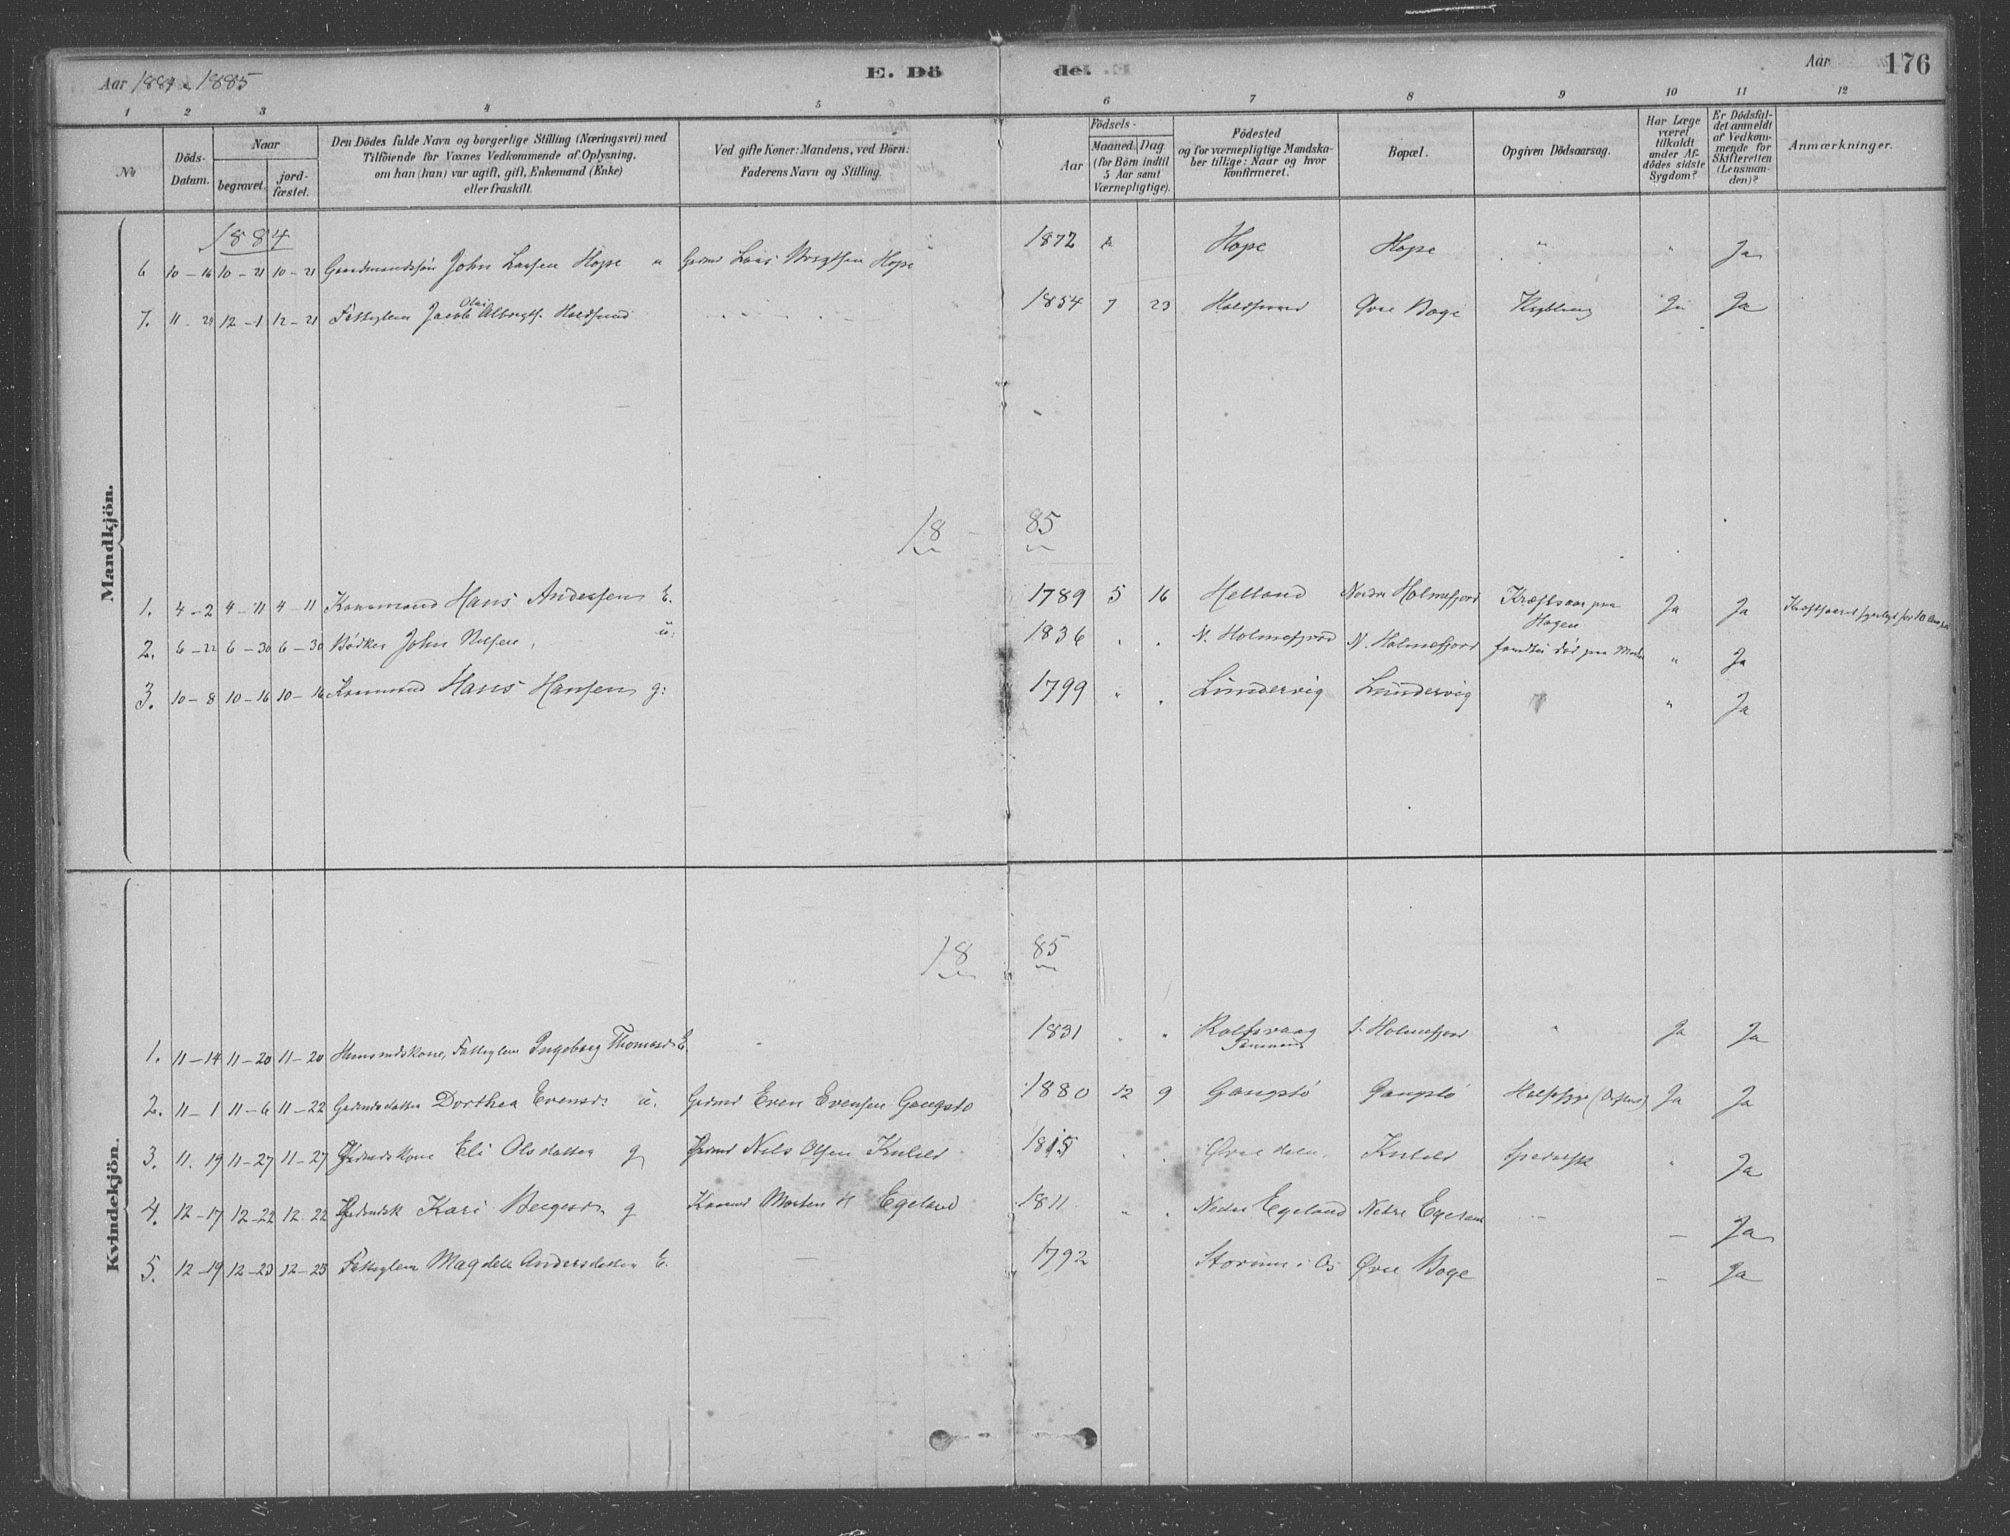 Aar 1884 & 1885 E. Dö de. Aar 176
1 2 3 4 5 6 7 8 9 10 11 12
No Döds-Datum. Naar begravet. jord-fæstet. Den Dödes fulde Navn og borgerlige Stilling (Næringsvei) med Tilföiende for Voxnes Vedkommende af Oplysning. om han (hun) var ugift, gift, Enkemand (Enke) eller fraskilt. Ved gifte Koner: Mandens, ved Börn: Faderens Navn og Stilling. Födsels- Aar Maaned. Dag (for Börn indtil 5 Aar samt Værnepligtige). Födested og for værnepligtige Mandska-ber tillige: Naar og hvor konfirmeret. Bopæl. Opgiven Dödsaarsag. Har Læge været tilkaldt under Af-dödes sidste Sygdom? Er Dödsfal-det anmeldt af Vedkom-mende for Skifteretten (Lensman-den)? Anmærkninger.
Mandkjön.
1884
6 10-14 10-21 10-21 Gaardmandssön John Larsen Hope u Grdmd Lars Hope 1872 Hope Hope " " Ja
7. 11-24 12-1 12-21 Fattiglem Jacob Olai Holdsund 1854 7 23 Øvre Boge Ja Ja
1885
1. 4-2 4-11 4-11 Kaarmand Hans Andersen E. 1789 5 16 Helland Nordre Holmefjord Kræftsaar paa Hagen Ja Ja
2. 6-22 6-30 6-30 Bødker John Nilsen, u: 1836 . . N. Holmefjord N. Holmefjord fandtes død paa " Ja
3. 10-8 10-16 10-16 Kaarmand Hans Hansen g: 1799 " . Lundervig Lundervig ? " Ja
Kvindekjön.
1885
1. 11-14 11-20 11-20 Fattiglem Ingeborg Thomasd. E. 1831 . " Rolfsvaag S. Holmefjord " Ja Ja
2. 11-1 11-6 11-22 Grdmdsdatter Dorthea Evensd: u. Grdmd Even Evensen Gangstø 1880 12 9 Gangstø Gangstø Ja Ja
3. 11-19 11-27 11-27 Grdmdskone Eli Olsdatter g Grdmd Nils Olsen Kulild 1815 . . Øvre Kulild Spedalsk " Ja
4. 12-17 12-22 12-22 Kari g Kaarmd Morten Egeland 1811 " . Nedre Egeland Nedre Egeland - - Ja
5. 12-19 12-23 12-23 Fattiglem Magdele Andersdatter E. 1792 i Os Øvre Boge - Ja